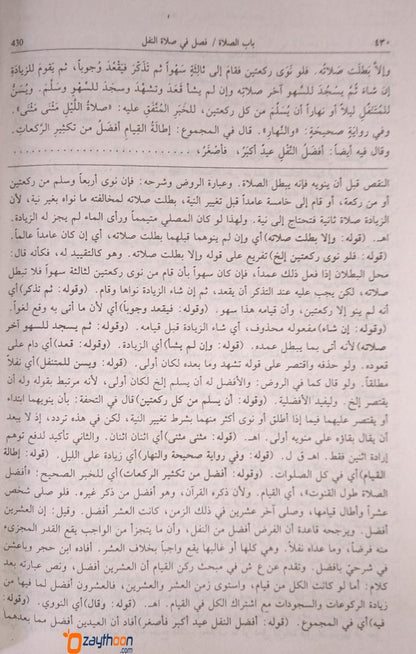 ٤٣٠ باب الصلاة / فصل في صلاة النفل 430
وإلا بَطلت صلاتُه. فلو نَوَى ركعتين فقامَ إلى ثالثةٍ سَهواً ثم تذكّرَ فيَقعُد وُجوباً، ثم يَقومُ للزيادةِ
إن شاءَ ثُمّ يسجُد للسهو آخر صلاتهِ وإن لم يشأ قَعَدَ وتشهدَ وسجدَ للسهْوِ وسَلّمَ. ويُسنّ
للمُتنفّلِ ليلاً أو نهاراً أن يُسَلّمَ من كل ركعتينِ، للخَبرِ المُتّفَق عليه: «صلاةُ اللّيْل مَثنَى مَثنَى».
وفي روايةٍ صحيحَةٍ: «والنّهارِ». قال في المجموع: إطالةُ القيام أفضلُ من تكثيرِ الركعاتِ.
وقال فيه أيضاً: أفضلُ النّفْلِ عيدٌ أكبرُ، فأصْغَرُ،
النقص قبل أن ينويه فإنه يبطل الصلاة. وعبارة الروض وشرحه: فإن نوى أربعاً وسلم من ركعتين
أو من ركعة، أو قام إلى خامسة عامداً قبل تغيير النية، بطلت صلاته لمخالفته ما نواه بغير نية، لأن
الزيادة صلاة ثانية فتحتاج إلى نية. ولهذا لو كان المصلي متيمماً ورأى الماء لم يجز له الزيادة.
اهـ. (قوله: وإلا بطلت صلاته) أي وإن لم ينوهما قبلهما بطلت صلاته، أي إن كان عامداً عالماً.
(قوله: فلو نوى ركعتين إلخ) تفريع على قوله وإلا بطلت صلاته. وهو كالتقييد له، فكأنه قال:
محل البطلان إذا فعل ذلك عمداً، فإن كان سهواً بأن قام من نوى ركعتين لثالثة سهواً فلا تبطل
صلاته، لكن يجب عليه عند التذكر أن يقعد، ثم إن شاء الزيادة نواها وقام. (قوله: ثم تذكر) أي
أنه لم ينو إلا ركعتين، وأن قيامه هذا سهو. (قوله: فيقعد وجوباً) أي لأن ما أتى به وقع لغواً.
(قوله: إن شاء) مفعوله محذوف، أي شاء الزيادة قبل قيامه. (قوله: ثم يسجد للسهو آخر
صلاته) لأنه أتى بما يبطل عمده. (قوله: وإن لم يشأ) أي الزيادة. (قوله: قعد) أي دام على
قعوده. ولو حذفه واقتصر على قوله تشهد وما بعده لكان أولى. (قوله: ويسن للمتنفل) أي نفلاً
مطلقاً. ولو قال كما في الروض: والأفضل له أن يسلم إلخ لكان أولى، لأنه مرتبط بقوله وله أن
يقتصر إلخ. وليفيد الأفضلية. (قوله: أن يسلم من كل ركعتين) قال في التحفة: بأن ينويهما ابتداء
أو يقتصر عليهما فيما إذا أطلق أو نوى أكثر منهما بشرط تغيير النية، لكن في هذه تردد، إذ لا يبعد
أن يقال بقاؤه على منويه أولى. اهـ. (قوله: مثنى مثنى) أي اثنان اثنان. والثاني تأكيد لدفع توهم
إرادة اثنين فقط. اهـ ق ل. (قوله: وفي رواية صحيحة والنهار) أي زيادة على الليل. (قوله: إطالة
القيام) أي في كل الصلوات. (وقوله: أفضل من تكثير الركعات) أي للخبر الصحيح: «أفضل
الصلاة طول القنوت»، أي القيام. ولأن ذكره القرآن، وهو أفضل من ذكر غيره. فلو صلى شخص
عشراً وأطال قيامها، وصلى آخر عشرين في ذلك الزمن، كانت العشر أفضل. وقيل: إن العشرين
أفضل. ويرجحه قاعدة أن الفرض أفضل من النفل، وأن ما يتجزأ من الواجب يقع القدر المجزىء
منه فرضاً، وما عداه نفلاً. وهي كلها أو غالبها يقع واجباً بخلاف العشر. أفاده ابن حجر وباعشن
في شرحي بافضل. وتقدم عن ع ش في مبحث ركن القيام أن العشرين أفضل، ونص عبارته بعد
كلام: أما لو كانت الكل من قيام، واستوى زمن العشر والعشرين، فالعشرون أفضل لما فيها من
زيادة الركوعات والسجودات مع اشتراك الكل في القيام. اهـ. (قوله: وقال) أي النووي. (وقوله:
فيه) أي في المجموع. (قوله: أفضل النفل عيد أكبر فأصغر) أفاد أن العيدين أفضل مما بعدهما
Ozaythoon.com